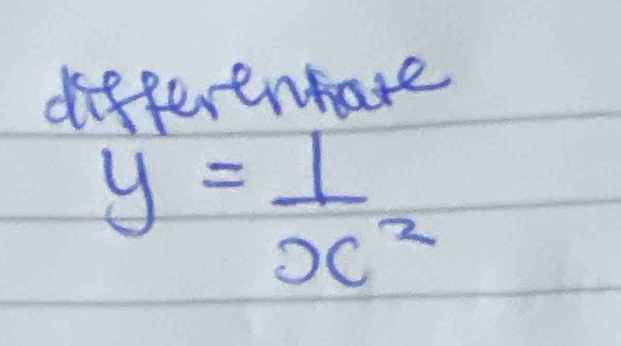 differentiate
y = 1
x²